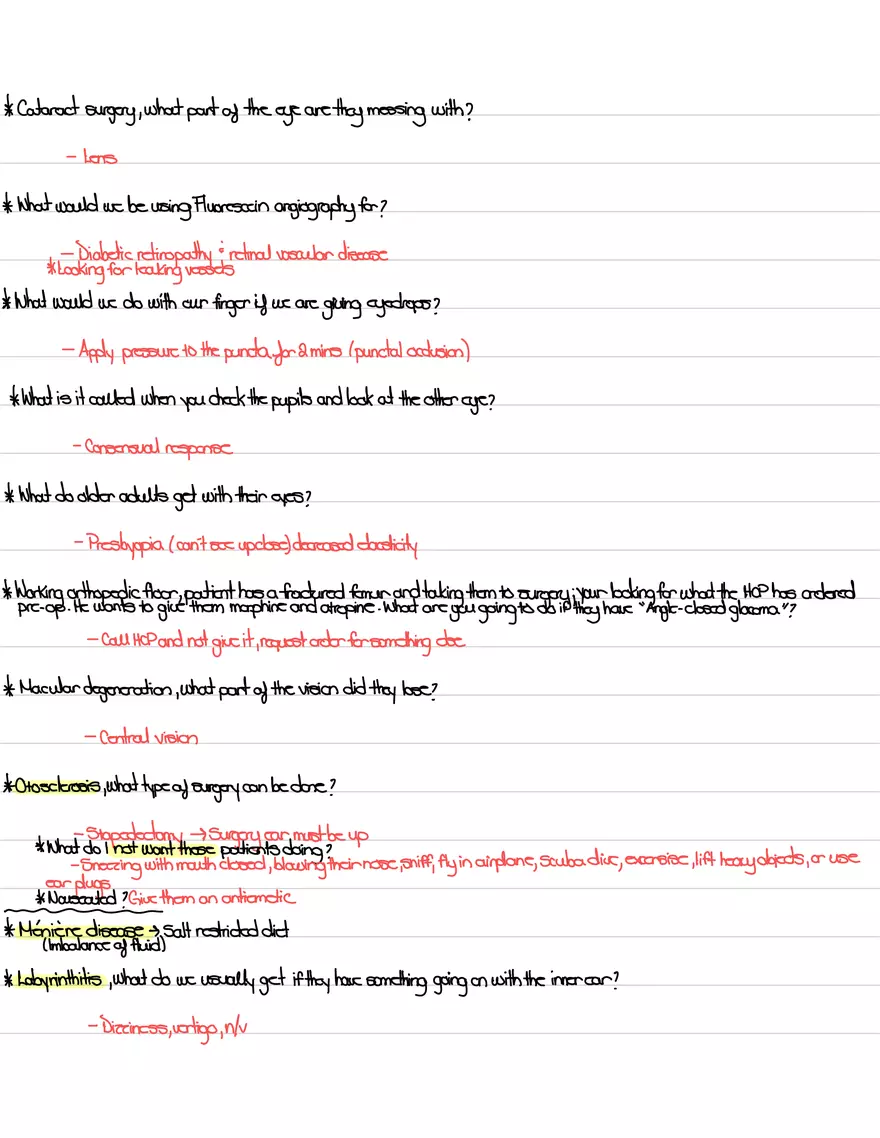 * Cataract surgery, what part of the eye are they messing with?
- Lens
* What would we be using Fluorescein angiography for?
- Diabetic retinopathy & retinal vascular disease
* Looking for leaking vessels
* What would we do with our finger if we are giving eyedrops?
- Apply pressure to the puncta for 2 mins (punctal occlusion)
* What is it called when you check the pupils and look at the other eye?
- Consensual response
* What do older adults get with their eyes?
- Presbyopia (can't see upclose) decreased elasticity
* Working orthopedic floor, patient has a fractured femur and taking them to surgery; your looking for what the HCP has ordered
pre-op. He wants to give them morphine and atropine. What are you going to do if they have "Angle-closed glacoma"?
- Call HCP and not give it, request order for something else
* Macular degeneration, what part of the vision did they lose?
- Central vision
* Otosclerosis, what type of surgery can be done?
- Stapedectomy → Surgery ear must be up
* What do I not want those patients doing?
- Sneezing with mouth closed, blowing their nose, sniff, fly in airplane, scuba dive, exercise, lift heavy objects, or use
ear plugs
* Nauseated? Give them an antiemetic
* Ménière disease → Salt restricted diet
(Imbalance of fluid)
* Labyrinthitis, what do we usually get if they have something going on with the inner ear?
- Dizziness, vertigo, n/v